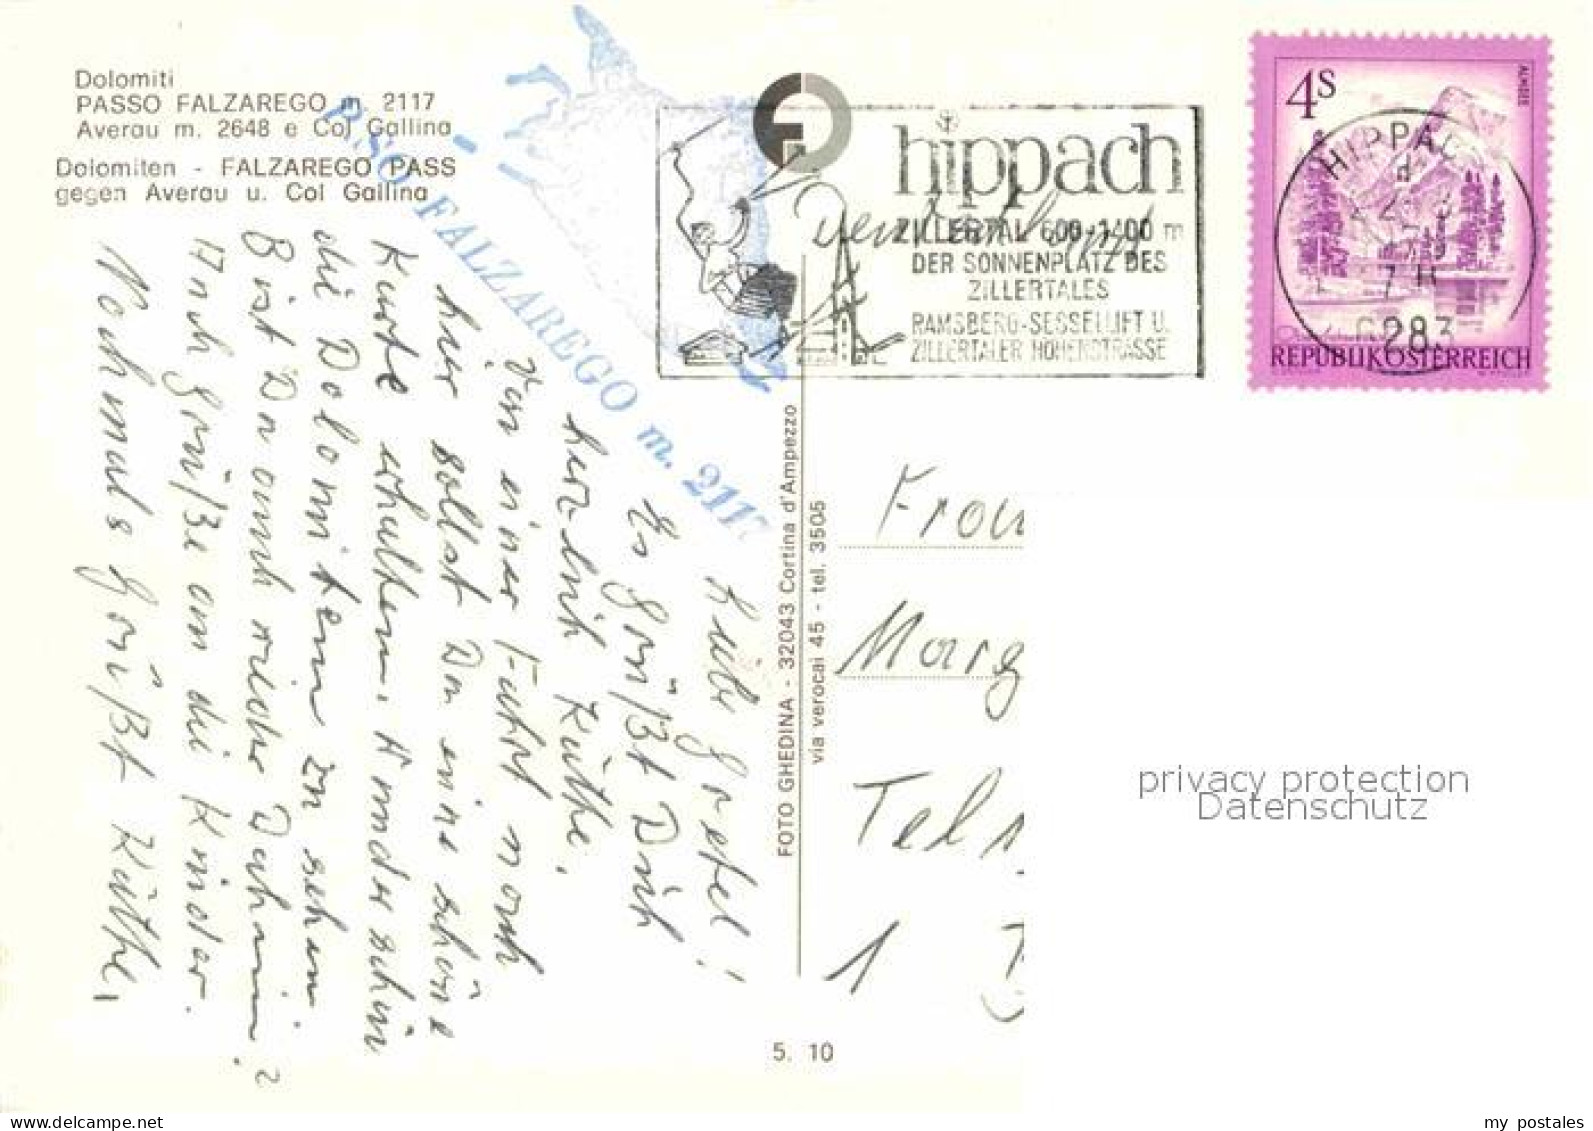 Dolomiti
PASSO FALZAREGO m. 2117
Averau m. 2648 e Col Gallina
Dolomiten - FALZAREGO PASS
gegen Averau u. Col Gallina
FALZAREGO m. 2117
hippach
ZILLERTAL 600-1400 m
DER SONNENPLATZ DES
ZILLERTALES
RAMSBERG-SESSELLIFT U.
ZILLERTALER HÖHENSTRASSE
4S
ALMSEE
HIPPAC
6283
REPUBLIK ÖSTERREICH
Liebe Gretel!
Es grüßt Dich
herzlich Käthe.
Von einer Fahrt noch
hier sollst Du eine schöne
Karte erhalten. Wunderschön
die Dolomiten zu sehen.
Bist Du auch wieder Daheim?
Auch Grüße an die Kinder.
Nochmals grüßt Käthe,
FOTO GHEDINA - 32043 Cortina d'Ampezzo
via verocai 45 - tel. 3505
Frau
Marg
1
5. 10
privacy protection
Datenschutz
my postales